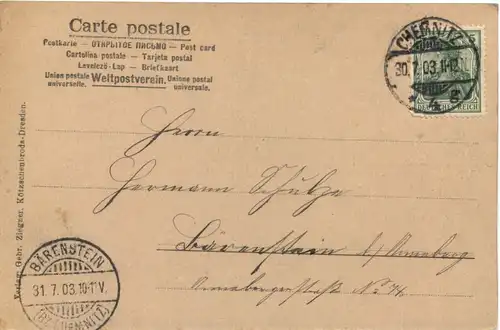 Carte postale
Postkarte — ОТКРЫТОЕ ПИСЬМО — Post card
Cartolina postale — Tarjeta postal
Levelező-Lap — Briefkaart
Union postale universelle. Weltpostverein. Unione postale universale.
CHEMNITZ
30.7.03.11-12.
DEUTSCHES REICH
Herrn
Hermann Schulze
Bärenstein b/ Annaberg
Annabergerstraße No
Verlag: Gebr. Ziegner, Kötzschenbroda-Dresden.
BÄRENSTEIN
31.7.03.10-11V.
(BZ. CHEMNITZ)